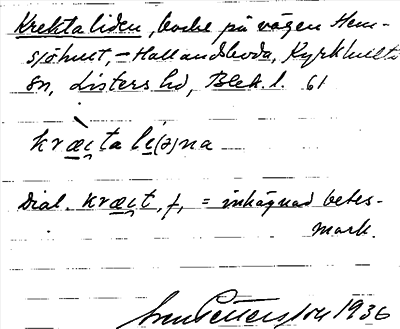 Krektaliden, backe på vägen Hem-
sjöhult, – Hallandsboda, Kyrkhults
sn, Listers hd, Blek. l. 61
kræi̯ta li(ə)na
Dial. kræi̯t, f, = inhägnad betes-
mark.
Sven Pettersson 1936